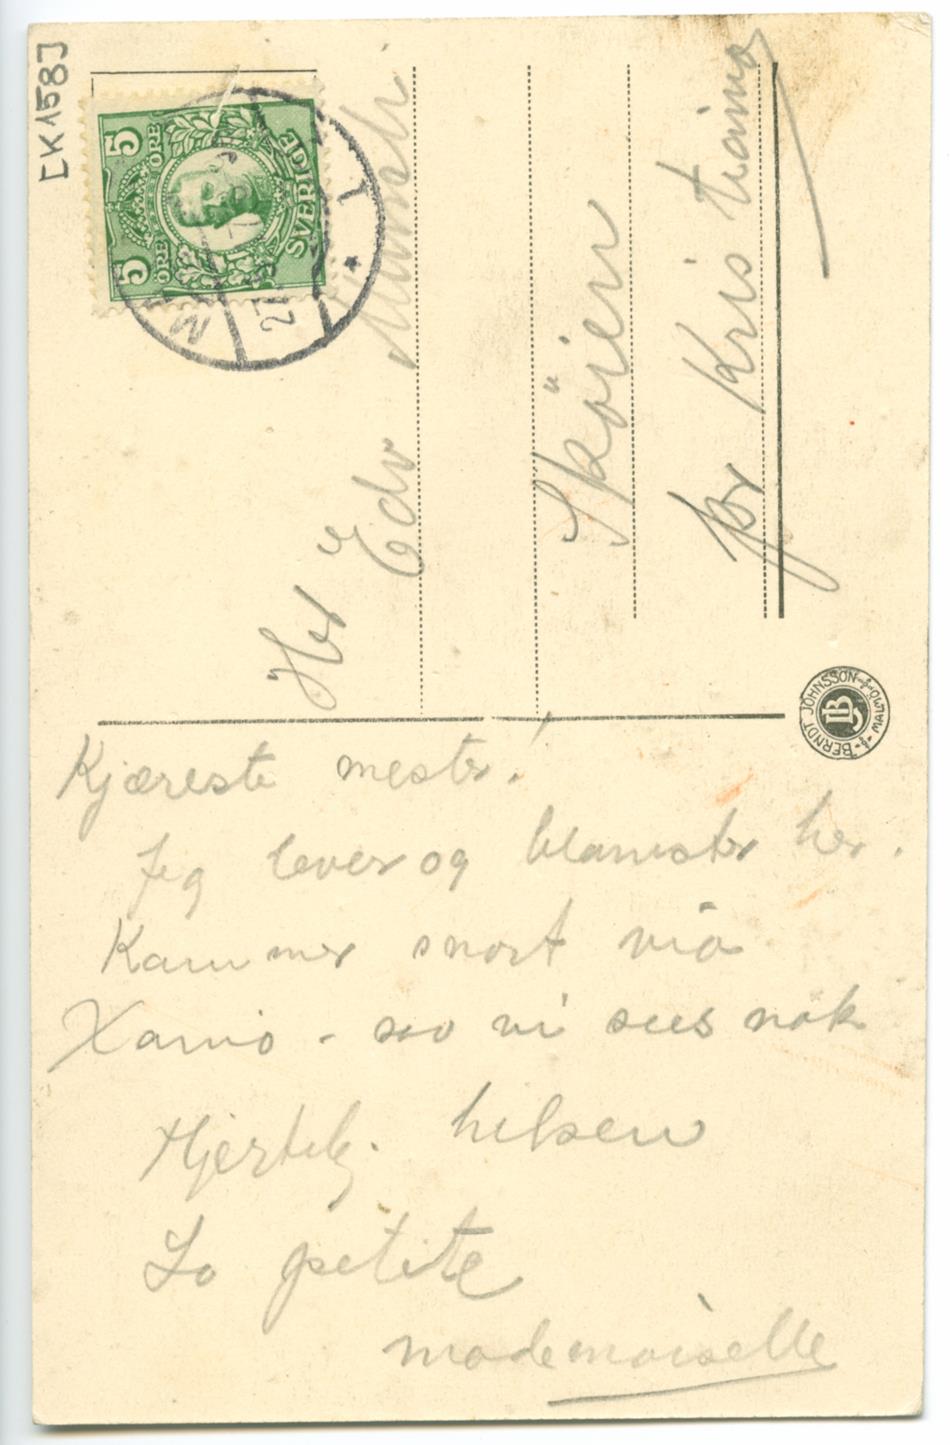 [K158]
5 5
ÖRE ÖRE
SVERIGE
27
Hr Edv Munch
Sköien
pr Kristiania
BERNDT JOHNSSON MALMÖ
Kjæreste mester!
Jeg lever og blomster her.
Kommer snart via
Xania - saa vi sees nok
Hjertelig. hilsen
La petite
mademoiselle